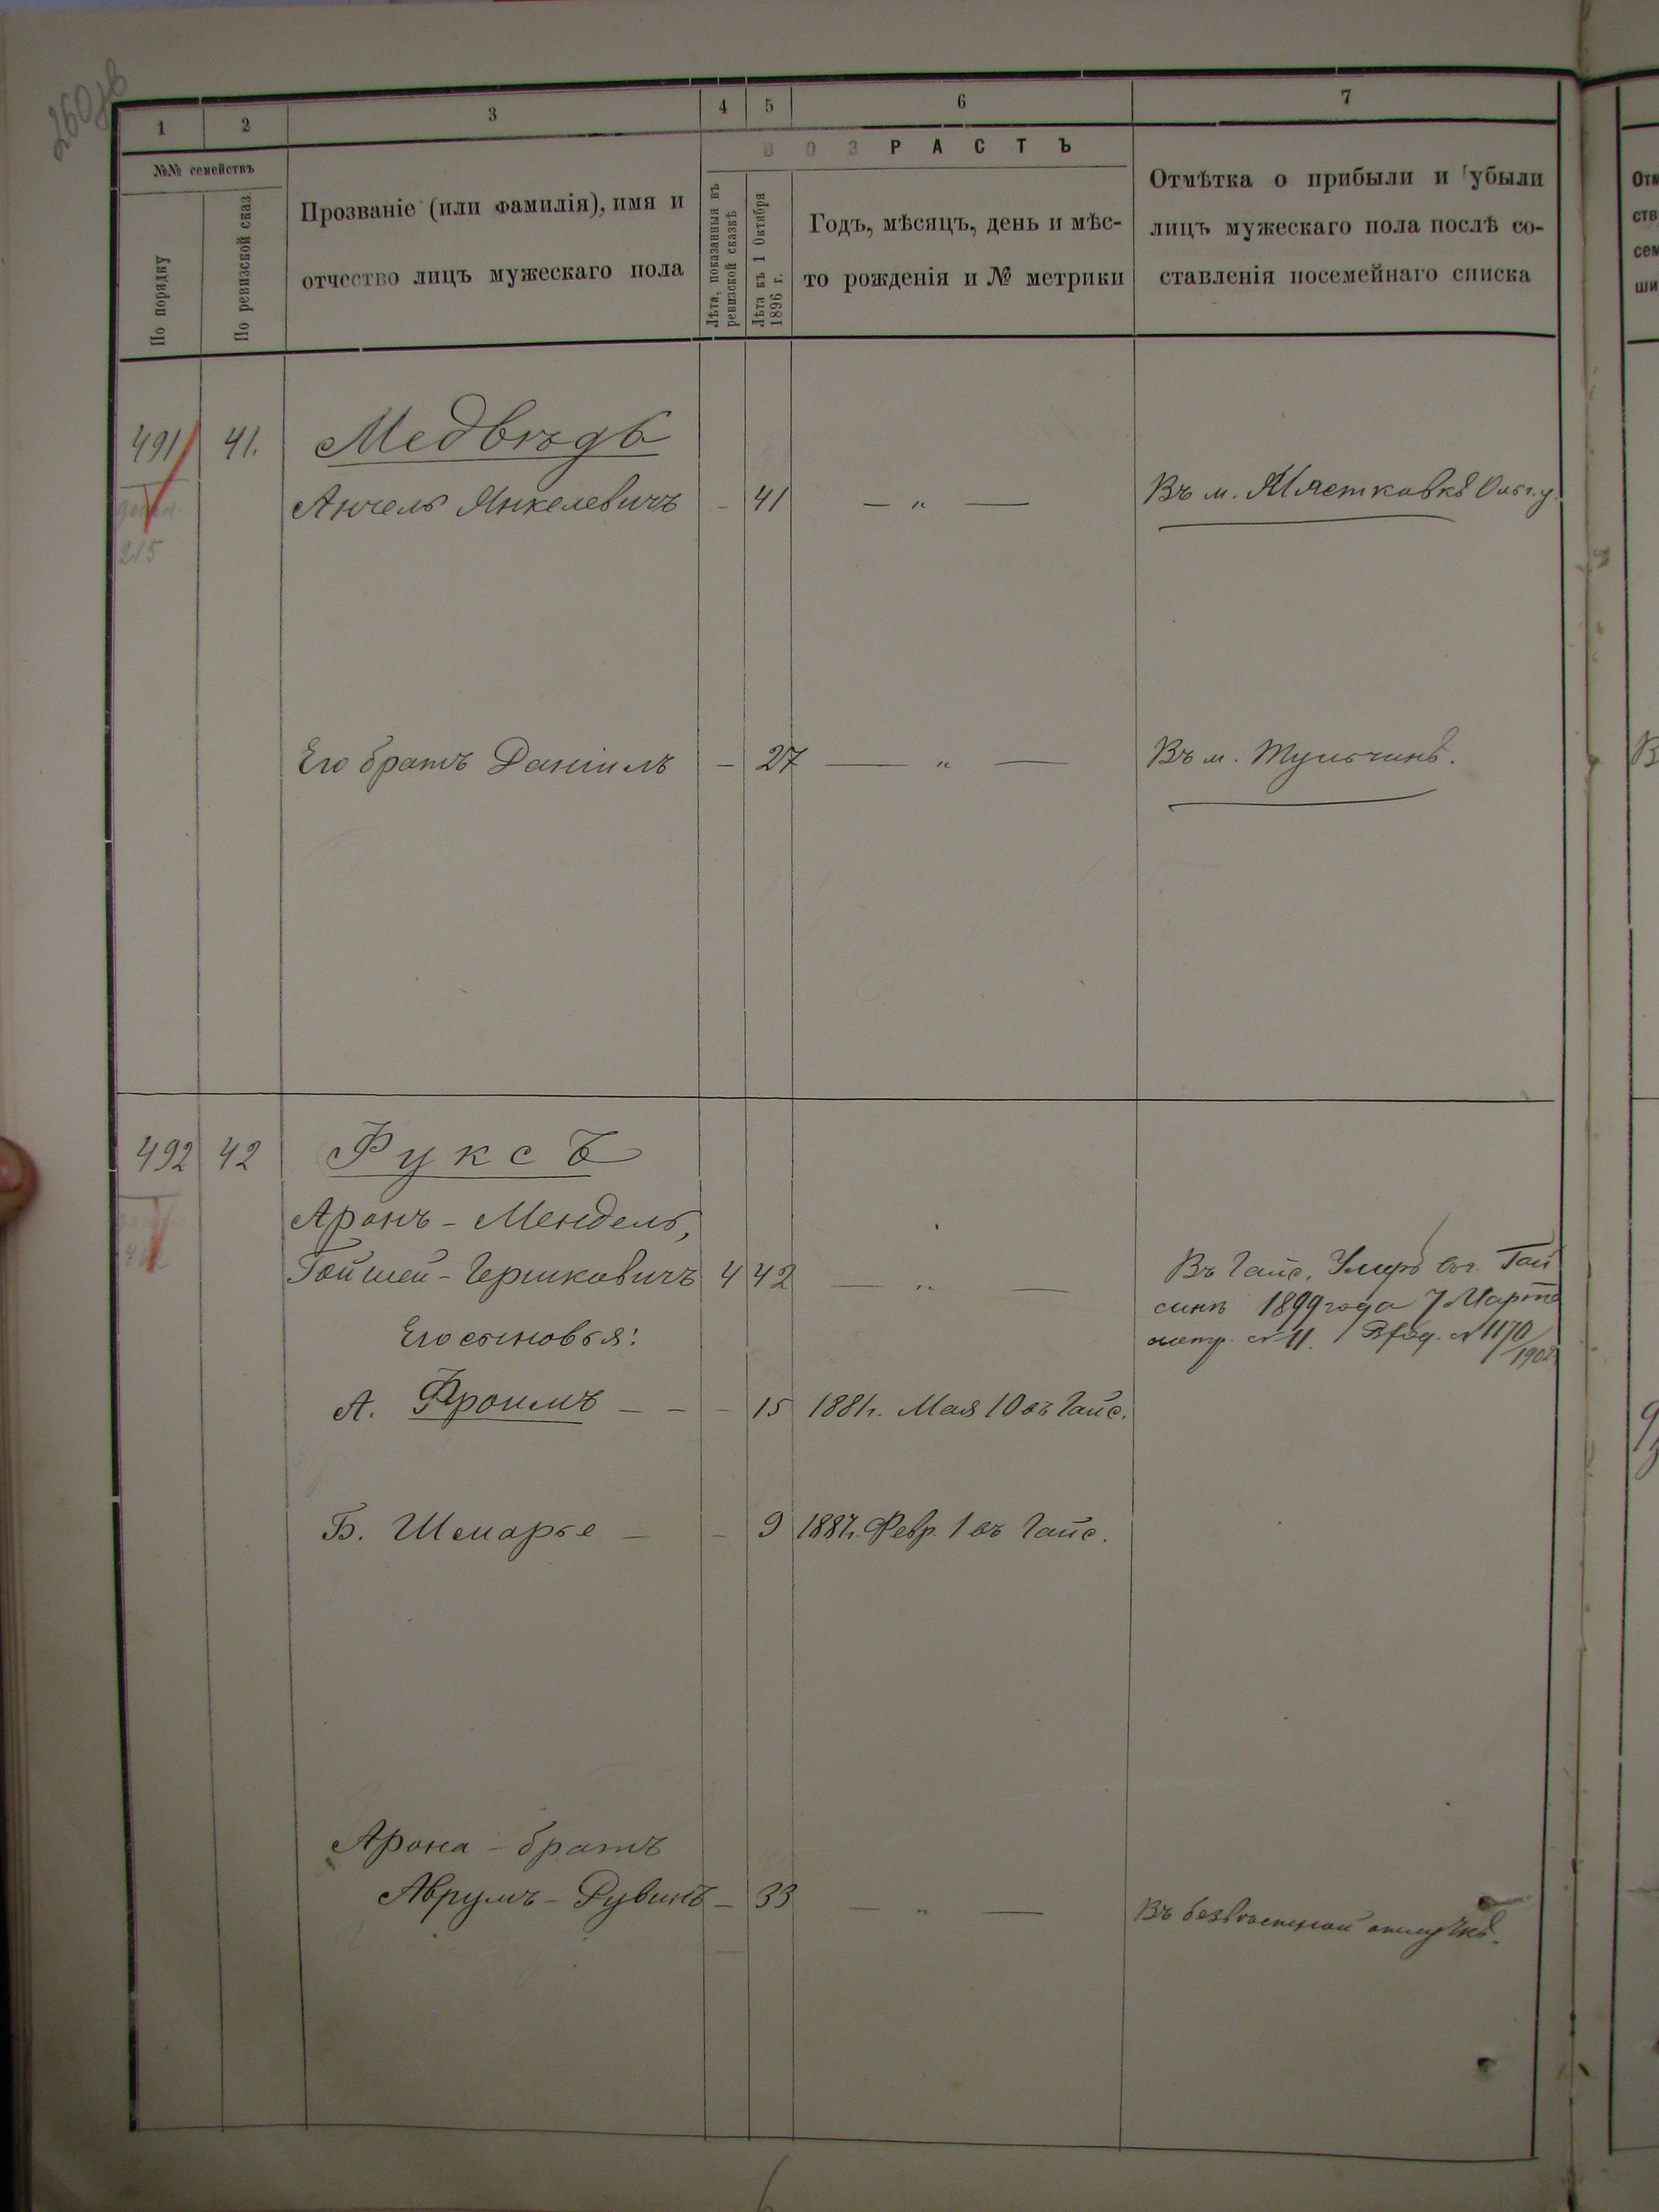 260об
1 2 3 4 5 6 7
№№ семействъ
По порядку
По ревизской сказ.
Прозваніе (или фамилія), имя и
отчество лицъ мужескаго пола
ВОЗРАСТЪ
Лѣта, показанныя въ
ревизской сказкѣ
Лѣта къ 1 Октября
1896 г.
Годъ, мѣсяцъ, день и мѣс-
то рожденія и № метрики
Отмѣтка о прибыли и убыли
лицъ мужескаго пола послѣ со-
ставленія посемейнаго списка
491 41. Медвѣдь
Анчель Янкелевичъ - 41 — " — Въ м. Мястковкѣ Ольг. у.
215
Его братъ Даніилъ - 27 — " — Въ м. Тульчинѣ.
492 42 Фуксъ
Аронъ-Мендель,
Гойшеи-Гершковичъ 4 42 — " — Въ Гайс. Умеръ въ г. Гай
синѣ 1899 года 7 Марта
метр. № 11. № 1170
1902
Его сыновья:
А. Фроимъ - - - 15 1881 г. Мая 10 въ Гайс.
Б. Шемарье - - 9 1887 г. Февр. 1 въ Гайс.
Арона - братъ
Аврумъ-Рувинъ - 33 — " — Въ безвѣстной отлучкѣ.